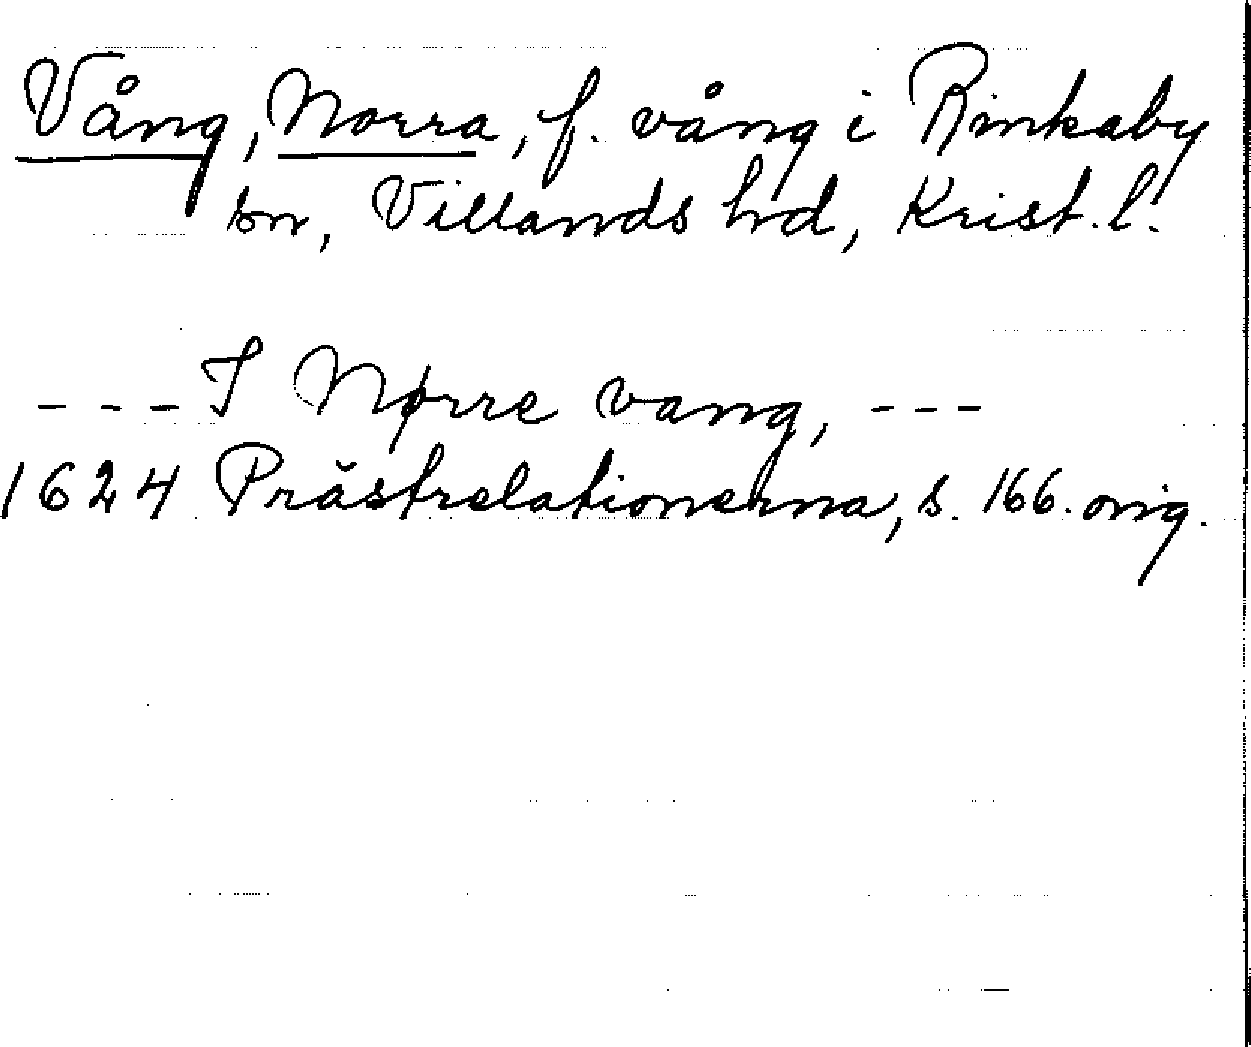 Vång, Norra, f. vång i Rinkaby
sn, Villands hd, Krist. l.
- - - I Nørre vang, - - -
1624 Prästrelationerna, s. 166. orig.